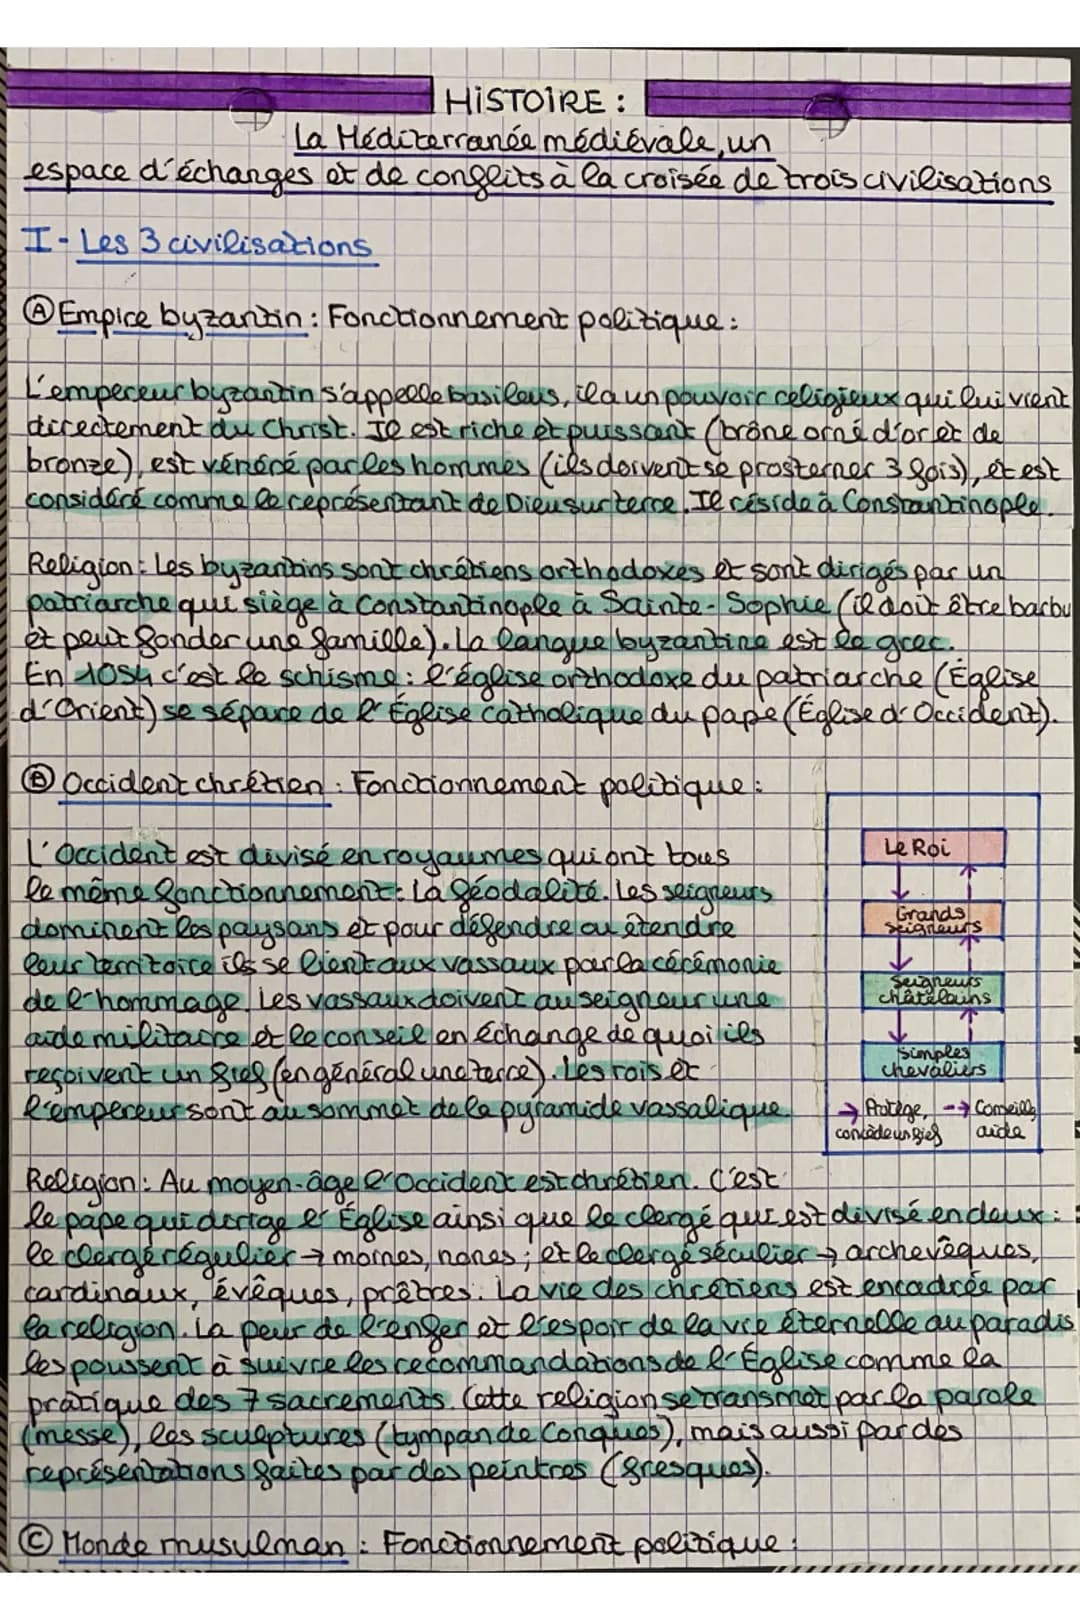 HISTOIRE :
La Méditerranée médiévale, un
espace d'échanges et de conflits à la croisée de trois civilisations
I - Les 3 civilisations
Ⓐ Empire byzantin : Fonctionnement politique :
L'empereur byzantin s'appelle basileus, il a un pouvoir religieux qui lui vient
directement du Christ. Il est riche et puissant (trône orné d'or et de
bronze), est vénéré par les hommes (ils doivent se prosterner 3 fois), et est
considéré comme le représentant de Dieu sur terre. Il réside à Constantinople.
Religion : Les byzantins sont chrétiens orthodoxes et sont dirigés par un
patriarche qui siège à Constantinople à Sainte-Sophie (il doit être barbu
et peut fonder une famille). La langue byzantine est le grec.
En 1054 c'est le schisme : l'église orthodoxe du patriarche (Église
d'Orient) se sépare de l'Église catholique du pape (Église d'Occident).
Ⓑ Occident chrétien : Fonctionnement politique :
L'Occident est divisé en royaumes qui ont tous
le même fonctionnement : La féodalité. Les seigneurs
dominent les paysans et pour défendre ou étendre
leur territoire ils se lient aux vassaux par la cérémonie
de l'hommage. Les vassaux doivent au seigneur une
aide militaire et le conseil en échange de quoi ils
reçoivent un fief (en général une terre). Les rois et
l'empereur sont au sommet de la pyramide vassalique.
Le Roi
Grands
seigneurs
Seigneurs
châtelains
Simples
chevaliers
→ Protège, --→ Conseille,
concède un fief aide
Religion : Au moyen-âge l'Occident est chrétien. C'est
le pape qui dirige l'Église ainsi que le clergé qui est divisé en deux :
le clergé régulier → moines, nones ; et le clergé séculier → archevêques,
cardinaux, évêques, prêtres. La vie des chrétiens est encadrée par
la religion. La peur de l'enfer et l'espoir de la vie éternelle au paradis
les poussent à suivre les recommandations de l'Église comme la
pratique des 7 sacrements. Cette religion se transmet par la parole
(messe), les sculptures (tympan de Conques), mais aussi par des
représentations faites par des peintres (fresques).
Ⓒ Monde musulman : Fonctionnement politique :